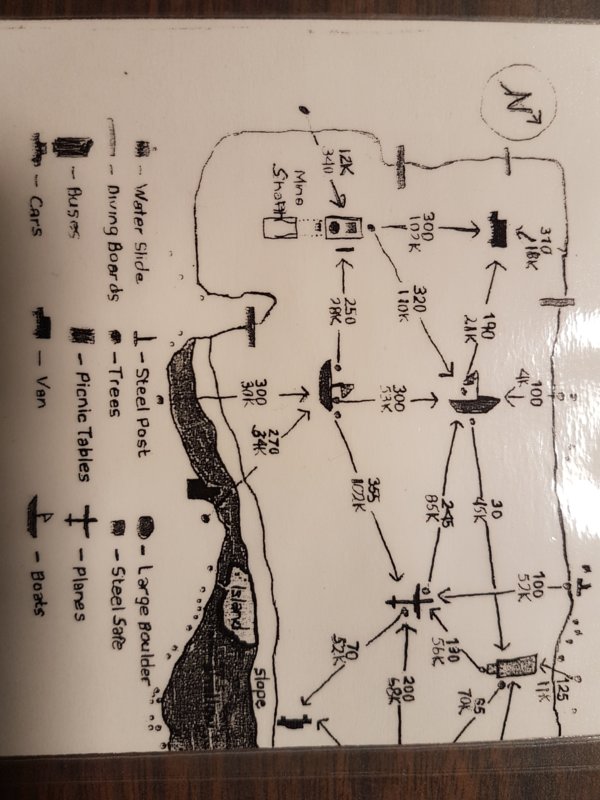 N
310
18K
100
4K
100
52K
125
11K
190
21K
30
45K
300
102K
320
110K
245
85K
130
56K
70K
300
53K
365
102K
200
68K
340
12K
250
28K
70
52K
Mne
Shaft
300
30K
270
34K
Island
Slope
- Water Slide
- Steel Post
- Large Boulder
- Diving Boards
- Trees
- Steel Safe
- Buses
- Picnic Tables
- Planes
- Cars
- Van
- Boats